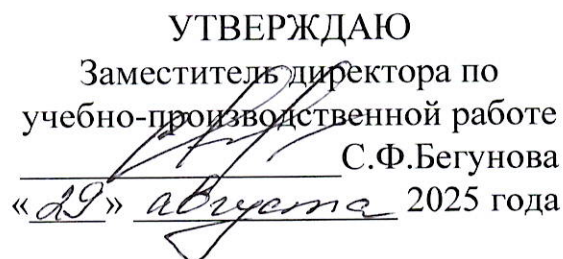 УТВЕРЖДАЮ
Заместитель директора по
учебно-производственной работе
С.Ф.Бегунова
«29» августа 2025 года